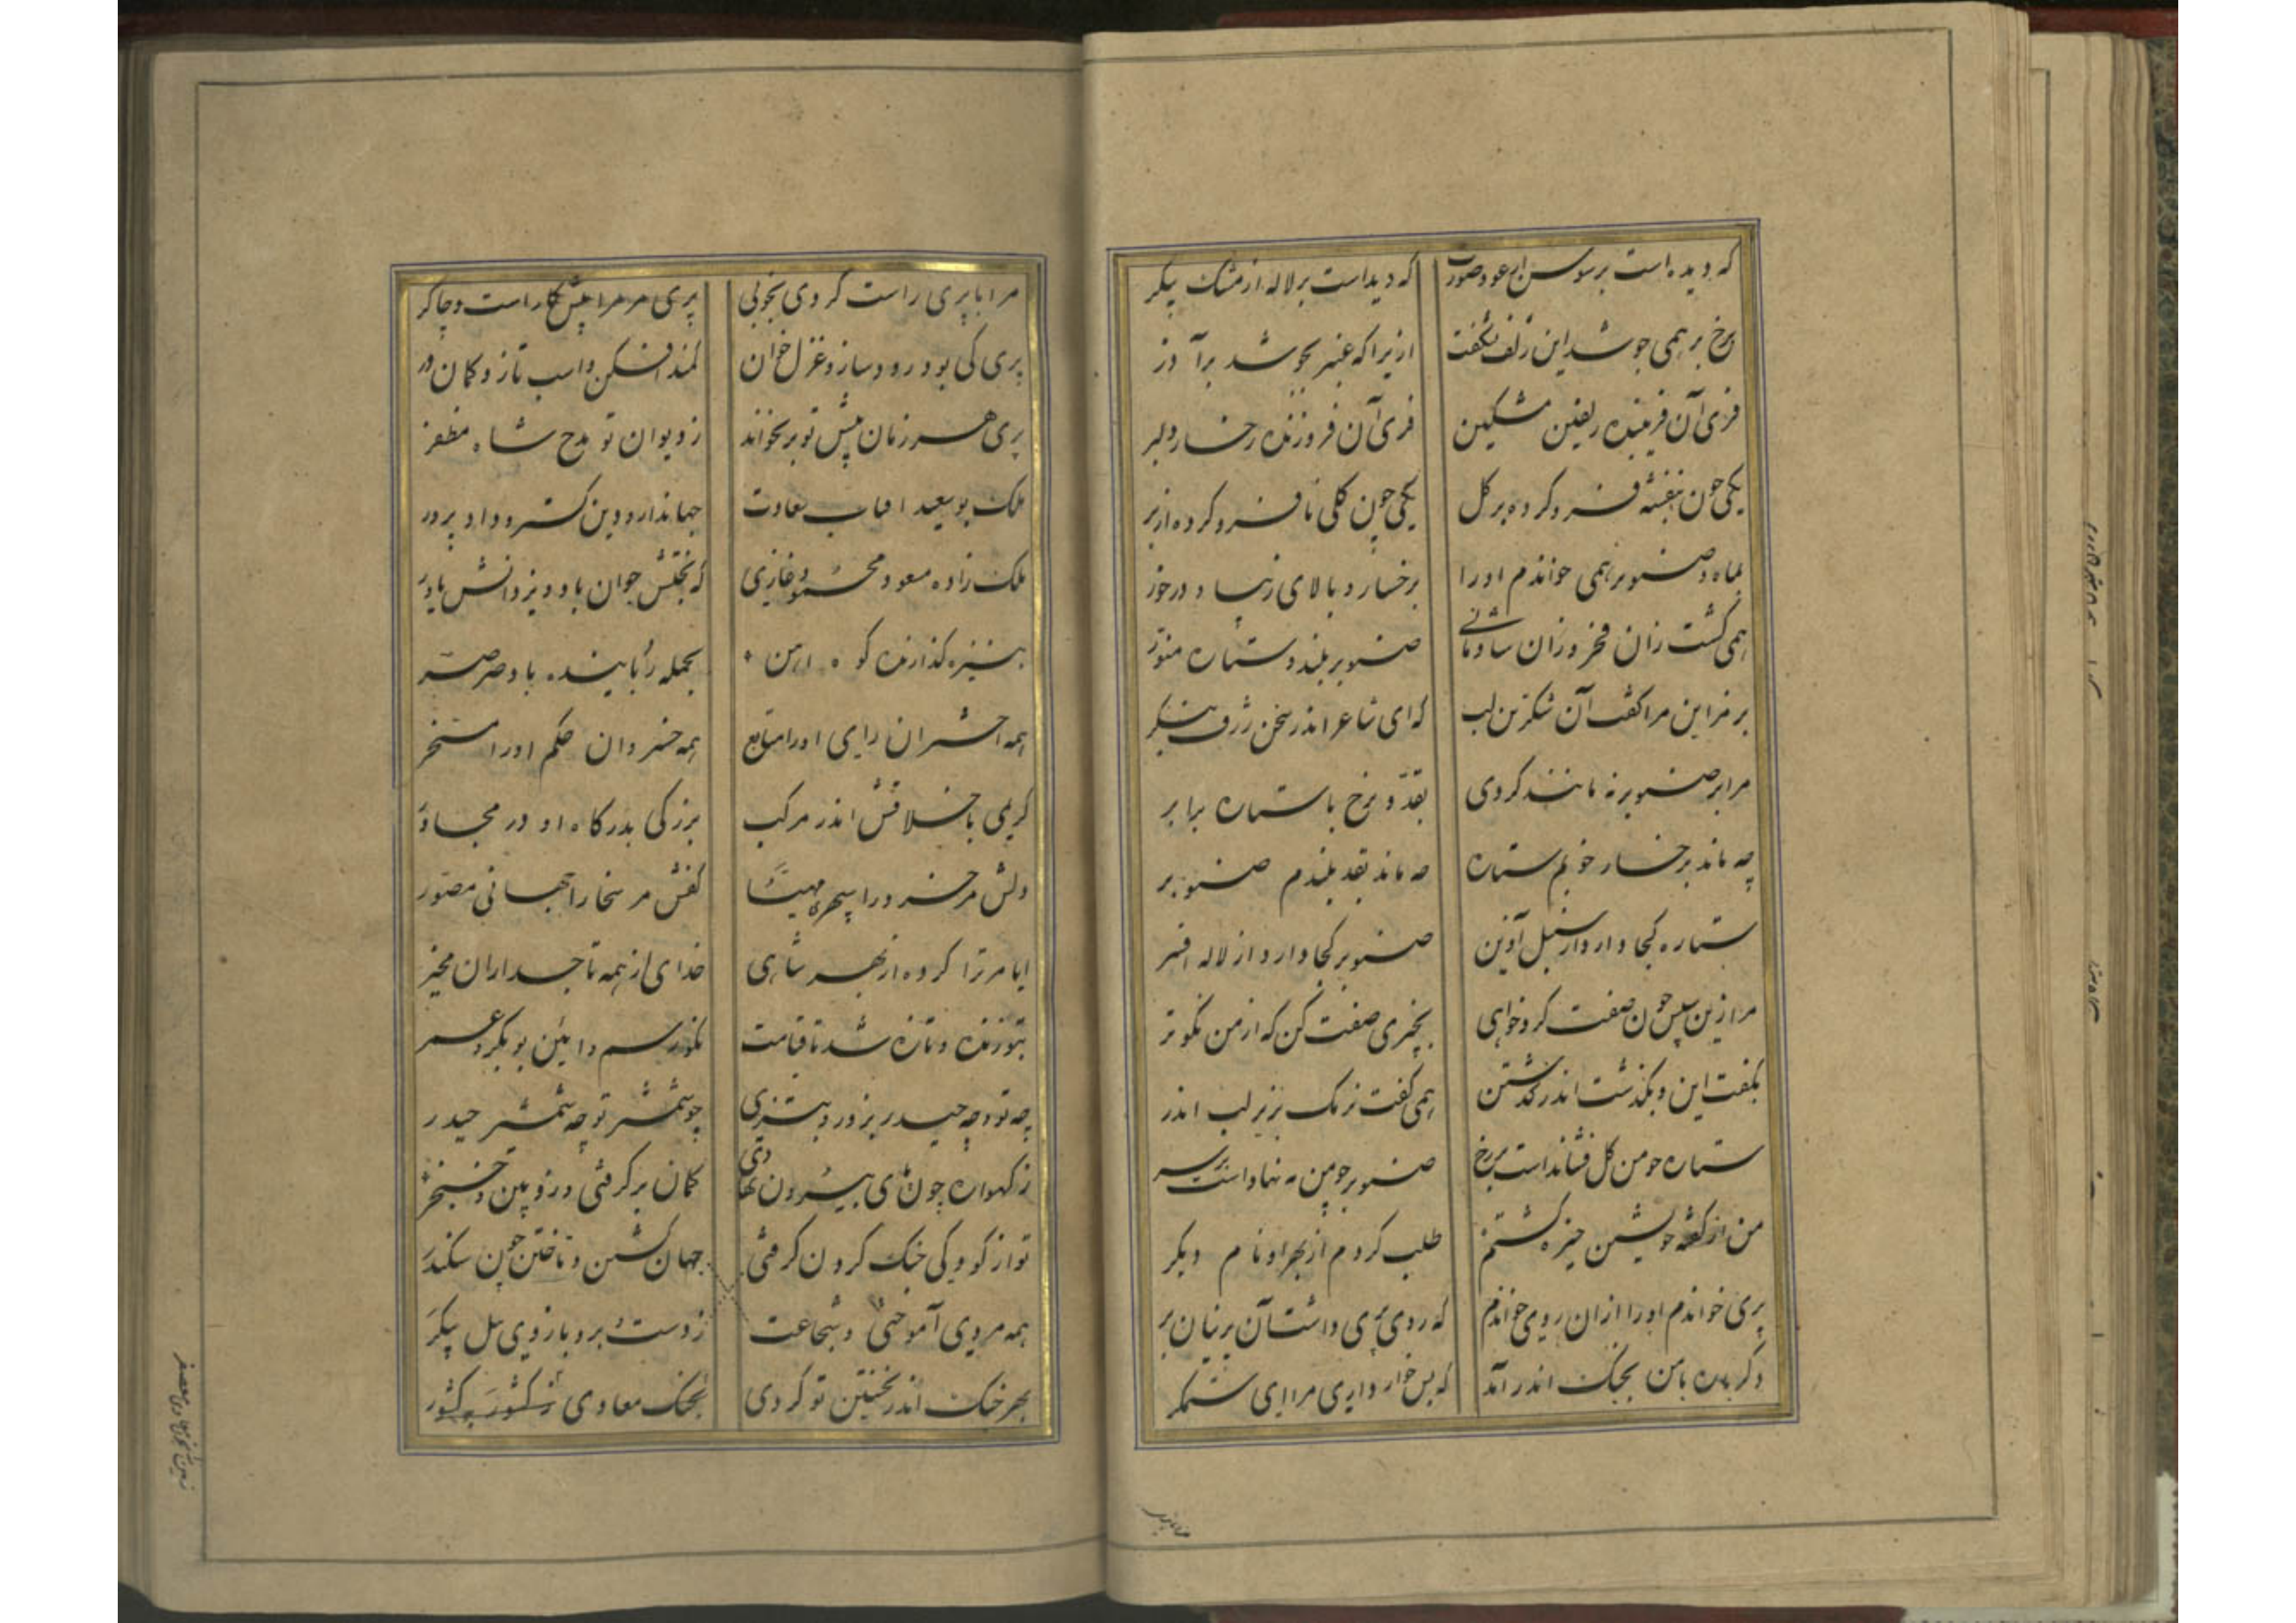 که دیده است بر سوسن از عود صورت که دیداست بر لاله از مشک پیکر
برخ بر همی جوشد این زلف نشگفت ازیرا که عنبر بجوشد برآذر
فری آن فریبنده زلفین مشکین فری آن فروزنده رخسار دلبر
یکی چون بنفشه فرو کرده بر گل یکی چون گلی نافرو کرده از بر
بماه و صنوبر همی خواندم اورا برخسار و بالای زیبا و درخور
همی گشت زان فخر و زان شادمانی صنوبر بلند و ستاره منور
مرا گفت آن شکرین لب که ای شاعر اندر سخن ژرف بنگر
مرا بر صنوبر نه مانند کردی بقد و برخ با ستاره برابر
چه ماند برخسار خوبم ستاره چه ماند بقد بلندم صنوبر
ستاره کجا دارد از سنبل آذین صنوبر کجا دارد از لاله افسر
مرا زین سپس چون صفت کرد خواهی بچیزی صفت کن که از من نکوتر
بگفت این و بگذشت اندر گذشتن همی گفت نرمک بزیر لب اندر
ستاره چو من گل فشانداست بررخ صنوبر چو من مه نهاد است برسر
من از گفته خویشتن خیره گشتم طلب کردم از بهر او نام دیگر
پری خواندم اورا ازان روی خواندم که روی پری داشت آن پرنیان بر
دگر باره با من بجنگ اندر آمد که بس خوار داری مرا ای ستمگر
مرا با پری
مرا با پری راست کردی بخوبی پری مر مرا پیشکار است و چاکر
پری کی بود رودساز و غزل خوان کمند افکن و اسب تاز و کمان ور
پری هر زمان پیش تو بر بخواند ز دیوان تو مدح شاه مظفر
ملک بوسعید آفتاب سعادت جهاندار و دین گستر و داد پرور
ملک زاده مسعود محمود غازی که بختش جوان باد و یزدانش یاور
بنیزه گذارنده کوه آهن بحمله رباینده باد صرصر
همه اخشران رای اورا متابع همه خسروان حکم اورا مسخر
کریمی باخلاقش اندر مرکب بزرگی بدرگاه او در مجاور
دلش مر خرد را سپهری مهیا کفش مر سخا را جهانی مصور
ایا مر ترا کرده از بهر شاهی خدای از همه تاجداران مخیر
بتو زنده و تازه شد تا قیامت نکو رسم و آئین بوبکر و عمر
چه تو و چه حیدر بزور و ستیزی چو شمشیر تو چه شمشیر حیدر
ز گهواره چون پای بیرون نهادی کمان برگرفتی و زوبین و خنجر
تو از کودکی جنگ کردن گرفتی جهان گشتن و تاختن چون سکندر
همه مردی آموختی و شجاعت ز دست برد و بازوی پیل پیکر
بهر جنگ اندر نخستین تو کردی بجنگ معادی ز کشور بکشور